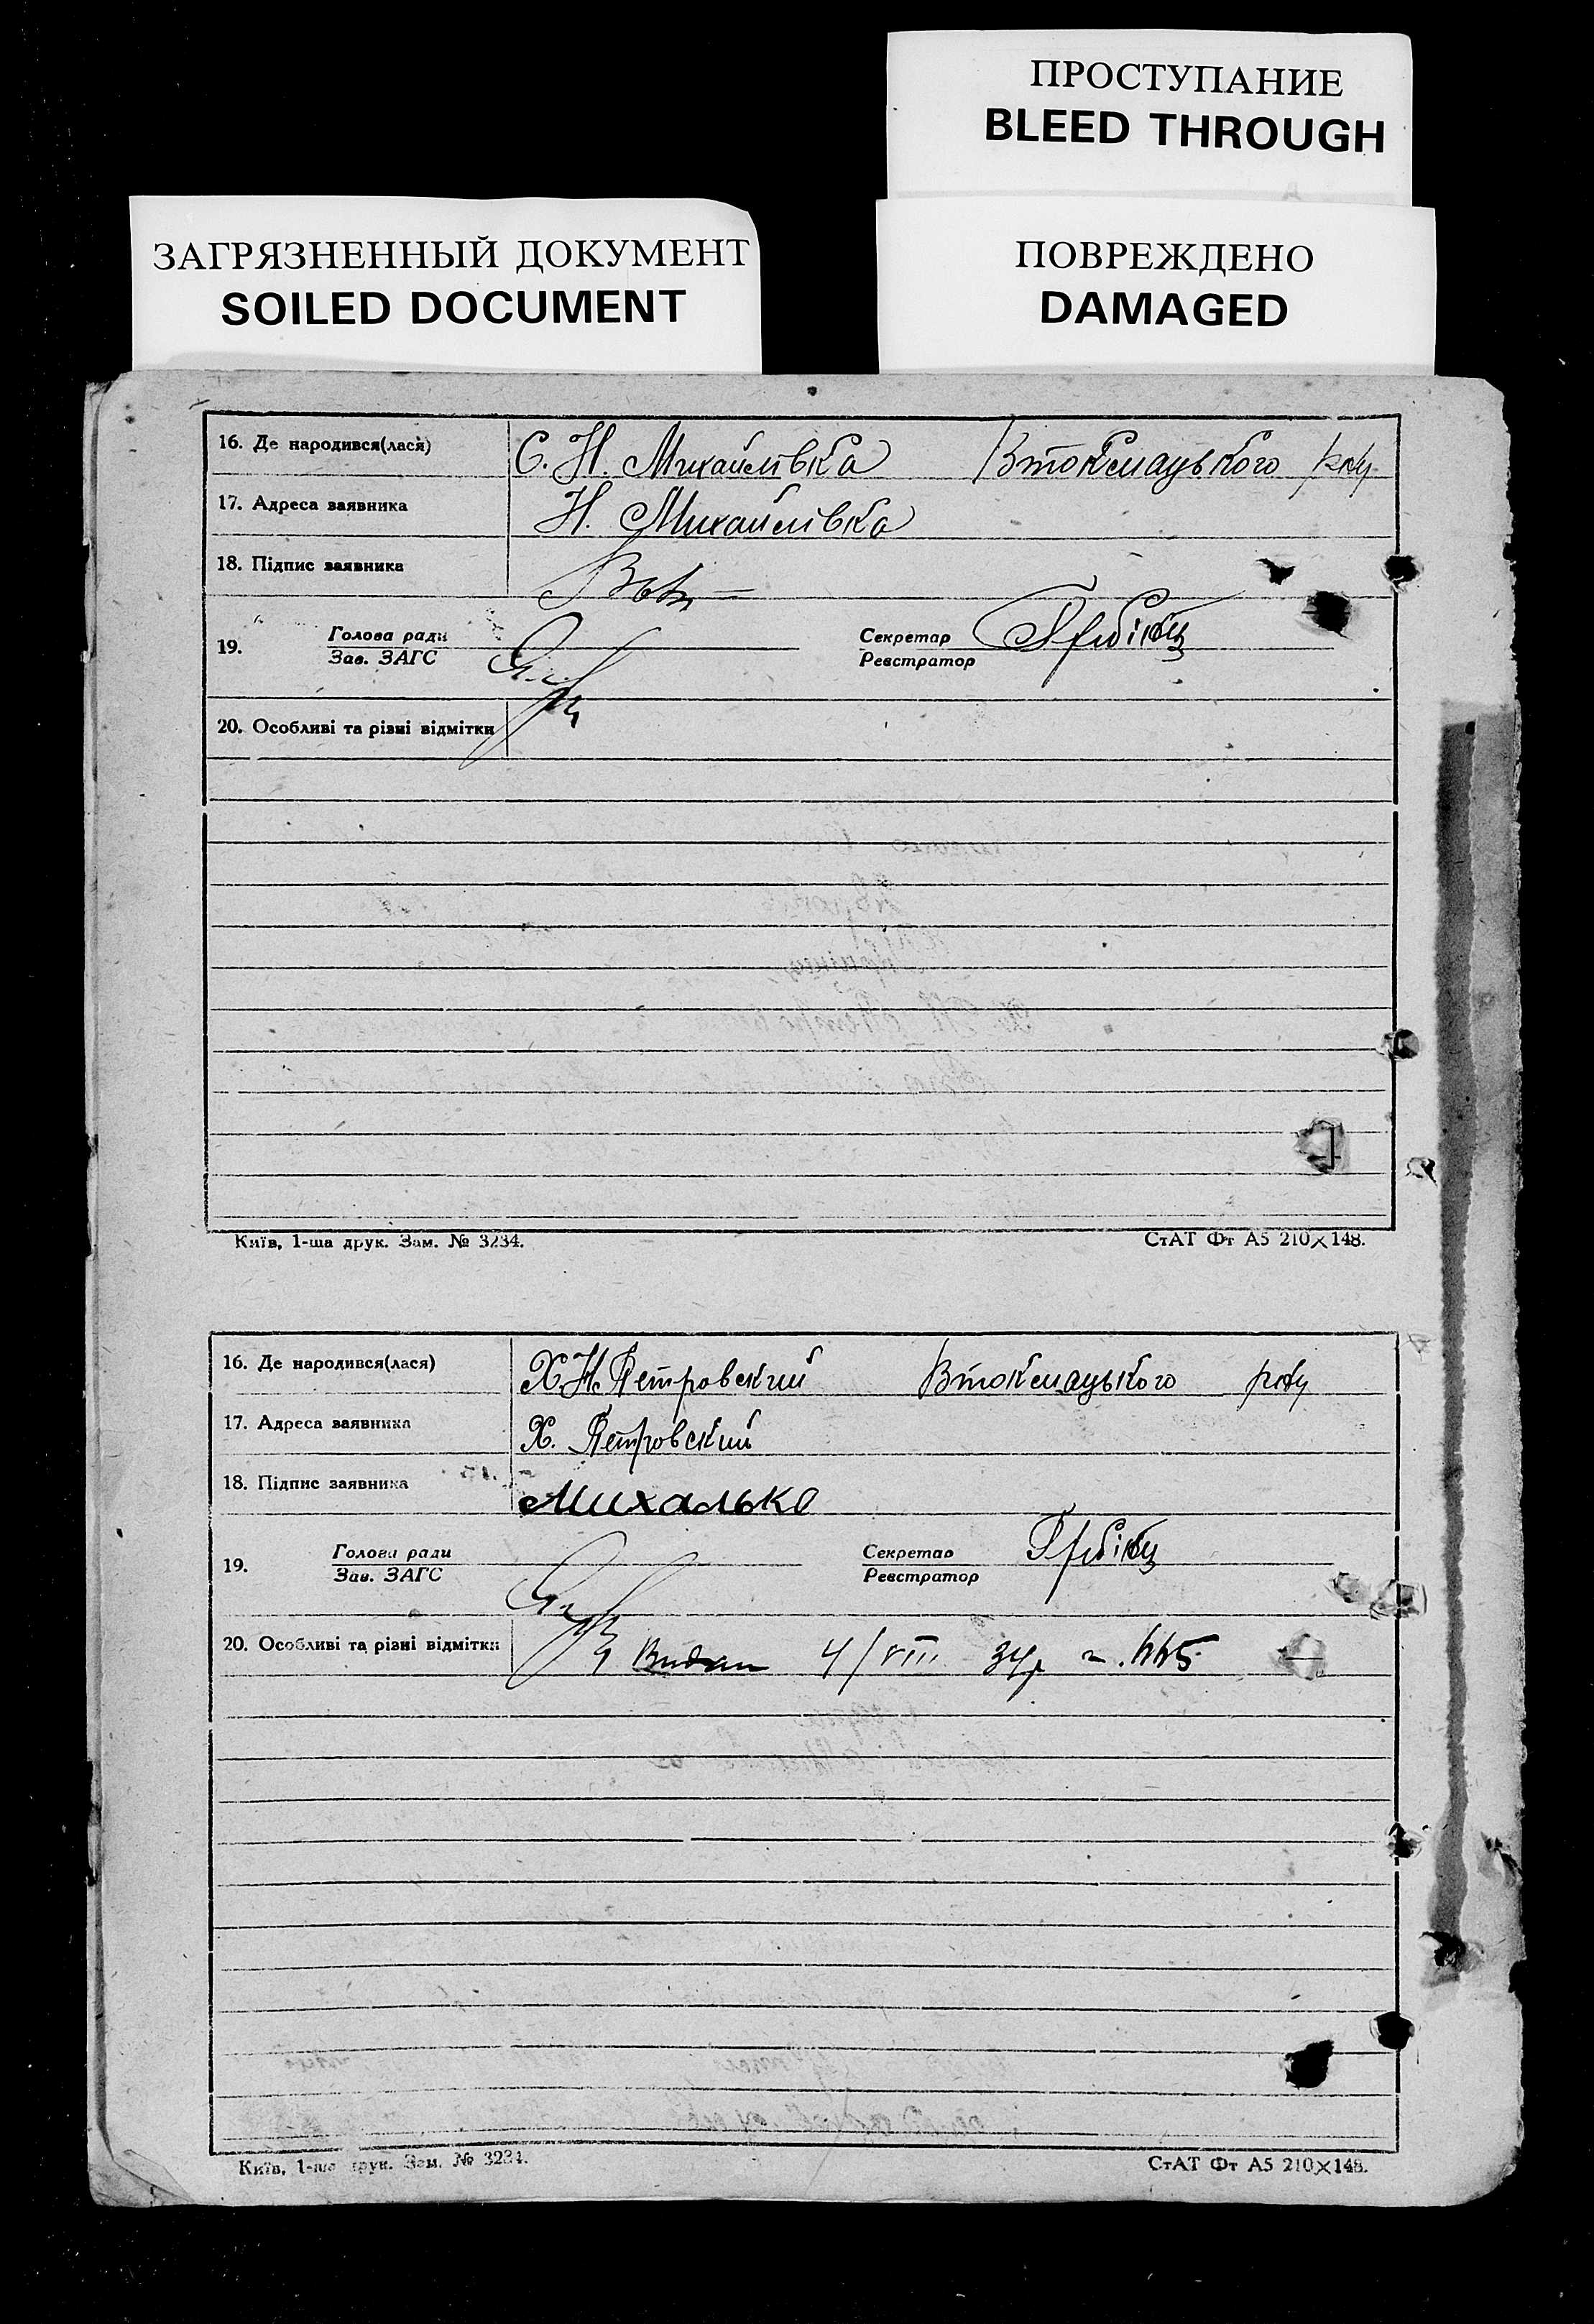 ПРОСТУПАНИЕ
BLEED THROUGH
ЗАГРЯЗНЕННЫЙ ДОКУМЕНТ
SOILED DOCUMENT
ПОВРЕЖДЕНО
DAMAGED
16. Де народився(лася) С. Н. Михайлівка Втокмацького р-ну
17. Адреса заявника Н. Михайлівка
18. Підпис заявника
19. Голова ради Секретар
Зав. ЗАГС Реєстратор
20. Особливі та різні відмітки
Київ, 1-ша друк. Зам. № 3234. СтАТ Фт А5 210×148.
16. Де народився(лася) Х.Н. Петровский Втокмацького р-ну
17. Адреса заявника Х. Петровский
18. Підпис заявника Михалько
19. Голова ради Секретар
Зав. ЗАГС Реєстратор
20. Особливі та різні відмітки 4/VIII 34р
Київ, 1-ша друк. Зам. № 3234. СтАТ Фт А5 210×148.